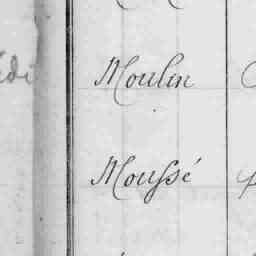 Moulin
Moussé